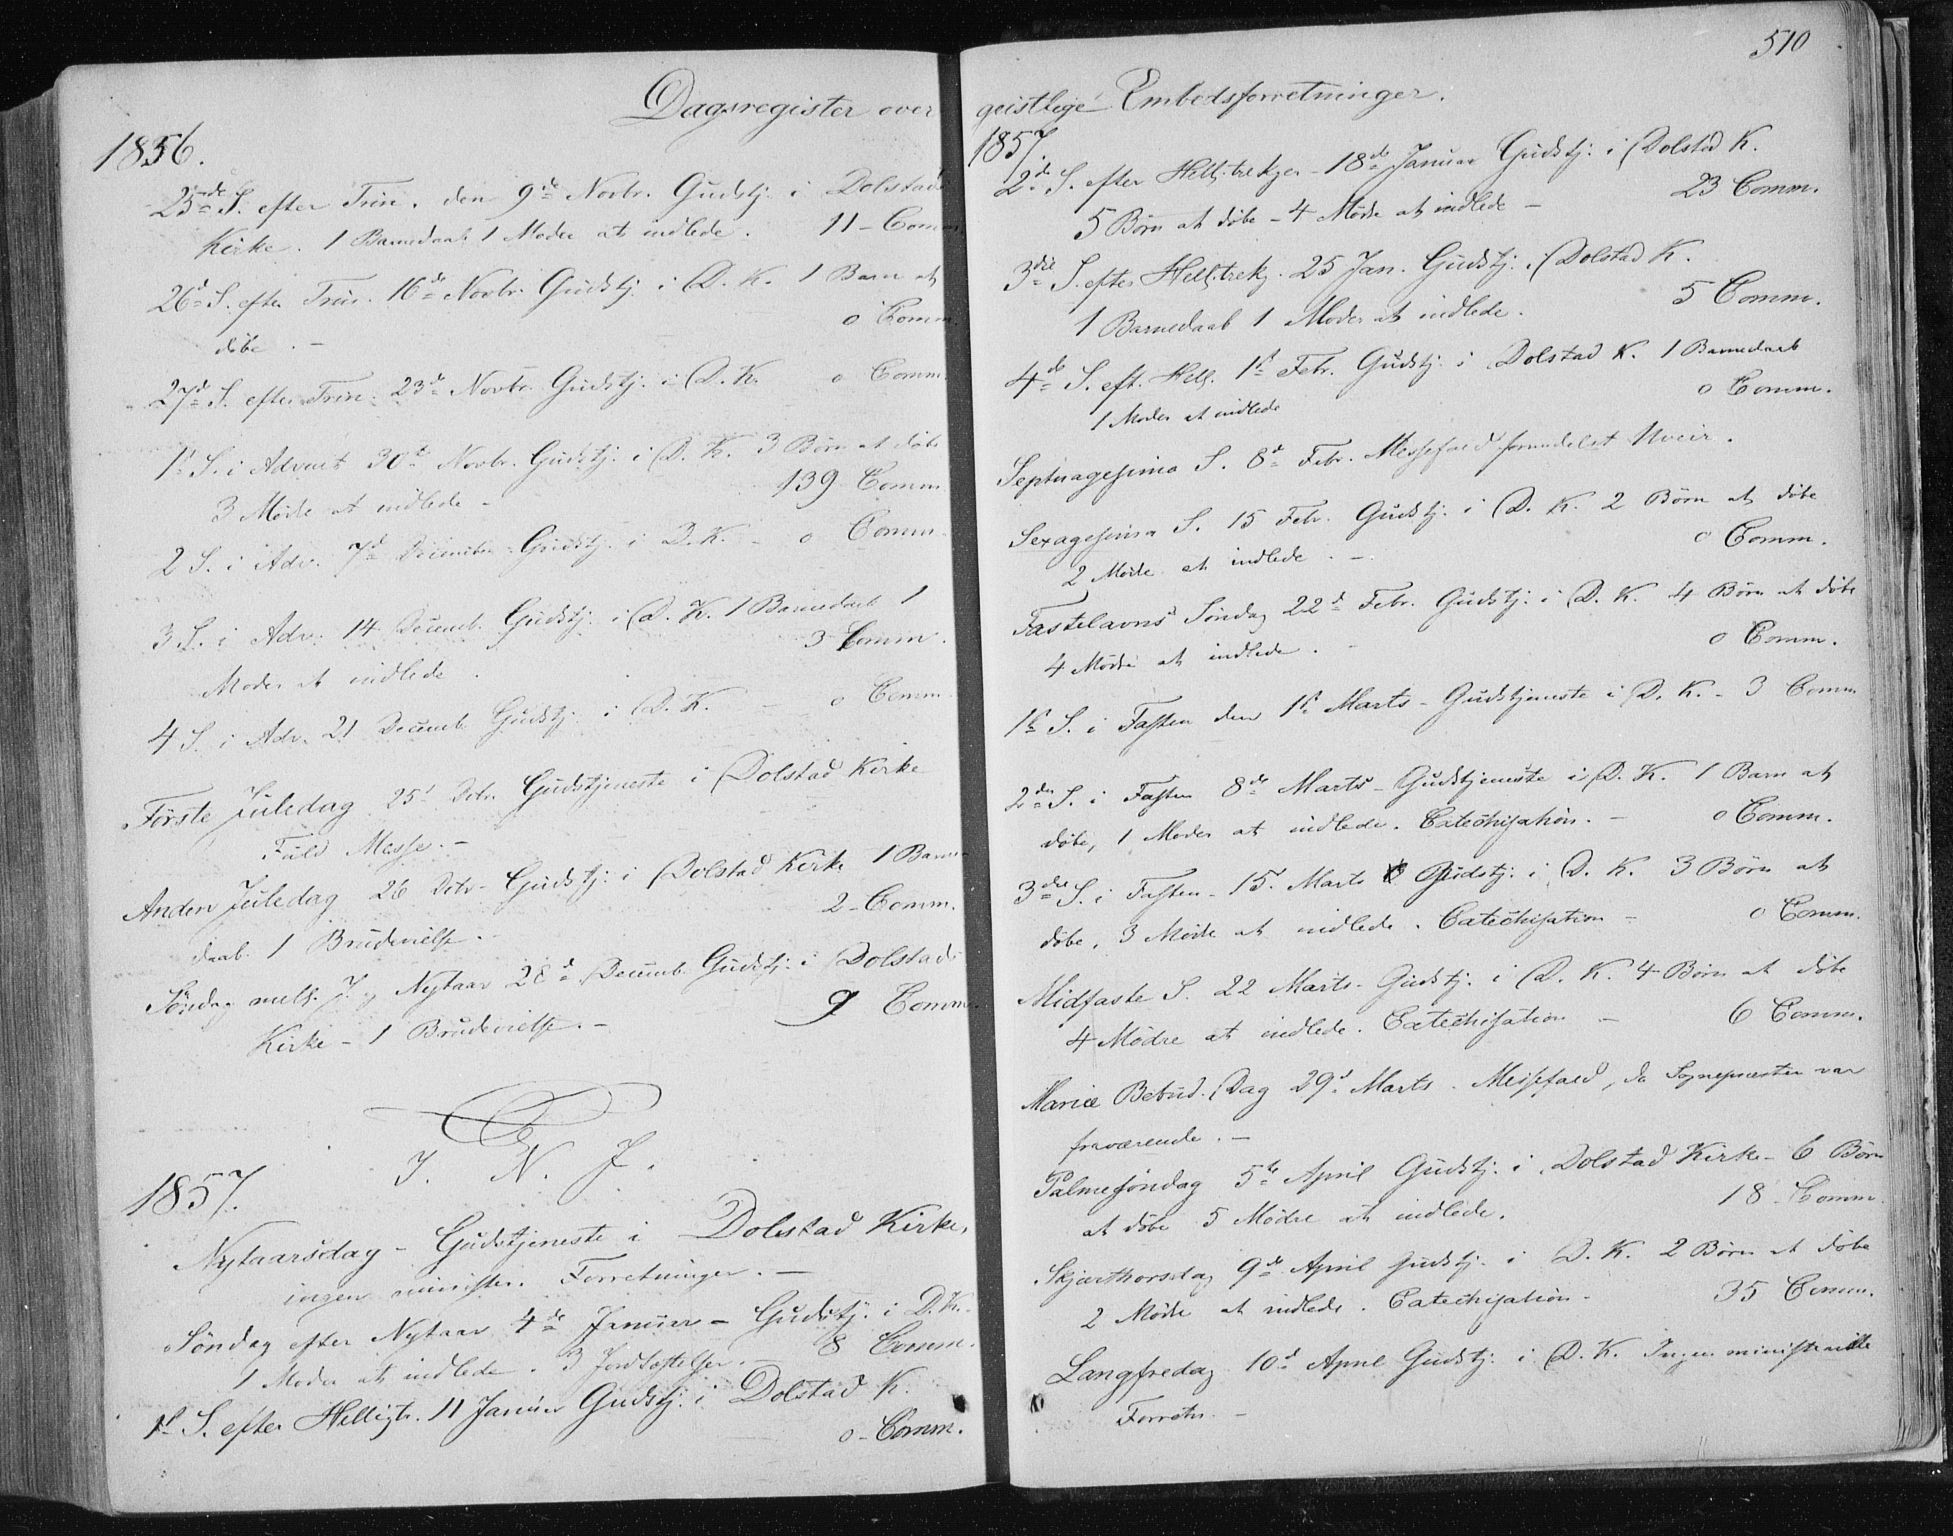 510
Dagsregister over geistlige Embedsforretninger.
1856.
25de S. efter Trin. den 9de Novbr. Gudstj. i Dolstads
Kirke. 1 Barnedaab 1 Moder at indlede. 11 - Comm.
26d S. efter Trin. 16de Novbr. Gudstj. i D. K. 1 Barn at
døbe. - 0 Comm.
27d S. efter Trin. 23de Novbr. Gudstj. i D. K. 0 Comm.
1st S. i Advent 30te Novbr. Gudstj. i D. K. 3 Børn at døbe
3 Mødre at indlede - 139 Comm.
2 S. i Adv. 7d December - Gudstj. i D. K. - 0 Comm.
3 S. i Adv. 14 Decemb. Gudstj. i D. K. 1 Barnedaab 1
Moder at indlede. 3 Comm.
4 S. i Adv. 21 Decemb. Gudstj. i D. K. - 0 Comm.
Første Juledag 25d Dcbr. Gudstjeneste i Dolstad Kirke
Fuld Messe. -
Anden Juledag 26 Dcbr. Gudstj. i Dolstad Kirke 1 Barne-
daab. 1 Brudevielse. - 2 - Comm.
Søndag mell. J. og Nytaar 28d Decemb. Gudstj. i Dolstads
Kirke - 1 Brudevielse. - 9 Comm.
I. N. J.
1857.
Nytaarsdag - Gudstjeneste i Dolstad Kirke,
ingen minister. Forretninger. -
Søndag efter Nytaar 4de Januar - Gudstj. i D. K.
1 Moder at indlede. 3 Jordfæstelser. 8 Comm.
1st S. efter Helligtr. 11 Januar Gudstj. i Dolstad K.
0 - Comm.
1857.
2de S. efter Hellitrekger - 18de Januar Gudstj. i Dolstad K.
5 Børn at døbe - 4 Mødre at indlede - 23 Comm.
3die S. efter Hell.trekg. 25 Jan. Gudstj. i Dolstad K.
1 Barnedaab 1 Moder at indlede. 5 Comm.
4de S. eft. Hell. 1st Febr. Gudstj. i Dolstad K. 1 Barnedaab
1 Moder at indlede 0 Comm.
Septuagesima S. 8d Febr. Messefald formedelst Uveir.
Sexagesima S. 15 Febr. Gudstj. i D. K. 2 Børn at døbe
2 Mødre at indlede. - 0 Comm.
Fastelavns Søndag 22d Febr. Gudstj. i D. K. 4 Børn at døbe
4 Mødre at indlede. - 0 Comm.
1st S. i Fasten den 1st Marts - Gudstjeneste i D. K. - 3 Comm.
2den S. i Fasten 8de Marts - Gudstjeneste i D. K. 1 Barn at
døbe, 1 Moder at indlede. Catechisation. - 0 Comm.
3die S. i Fasten - 15. Marts Gudstj. i D. K. 3 Børn at
døbe, 3 Mødre at indlede. Catechisation - 0 Comm.
Midfaste S. 22 Marts - Gudstj. i D. K. 4 Børn at døbe
4 Mødre at indlede. Catechisation - 6 Comm.
Mariæ Bebud. Dag 29d Marts - Messefald, da Sognepræsten var
fraværende. -
Palmesøndag 5te April Gudstj. i Dolstad Kirke - 6 Børn
at døbe 5 Mødre at indlede. 18 - Comm.
Skjærthorsdag 9de April Gudstj. i D. K. 2 Børn at døbe
2 Mødre at indlede. Catechisation - 35 Comm.
Langfredag 10d April Gudstj. i D. K. Ingen ministerielle
Forretn. -